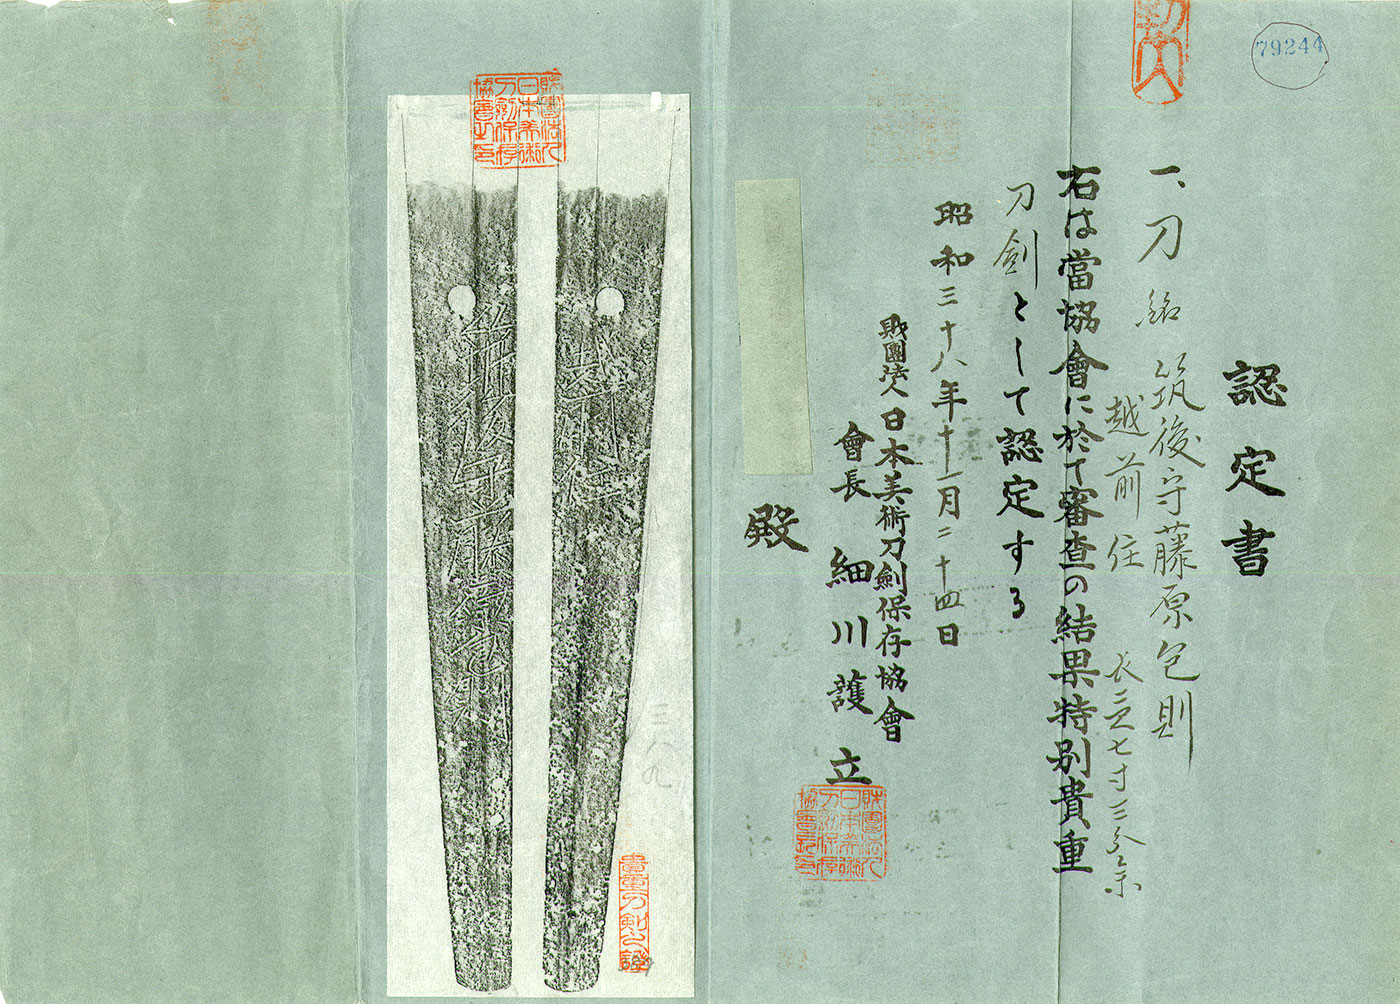 79244
認定書
一、刀 銘 筑後守藤原包則
越前住
長弐尺七寸三分余
右は當協會に於て審査の結果特別貴重
刀劍として認定する
昭和三十八年十一月二十四日
財團法人日本美術刀劍保存協會
會長 細川護立
殿
財團法人日本美術刀劍保存協會之印
筑後守藤原包則
越前住
三八九
財團法人日本美術刀劍保存協會長印
貴重刀劍之證